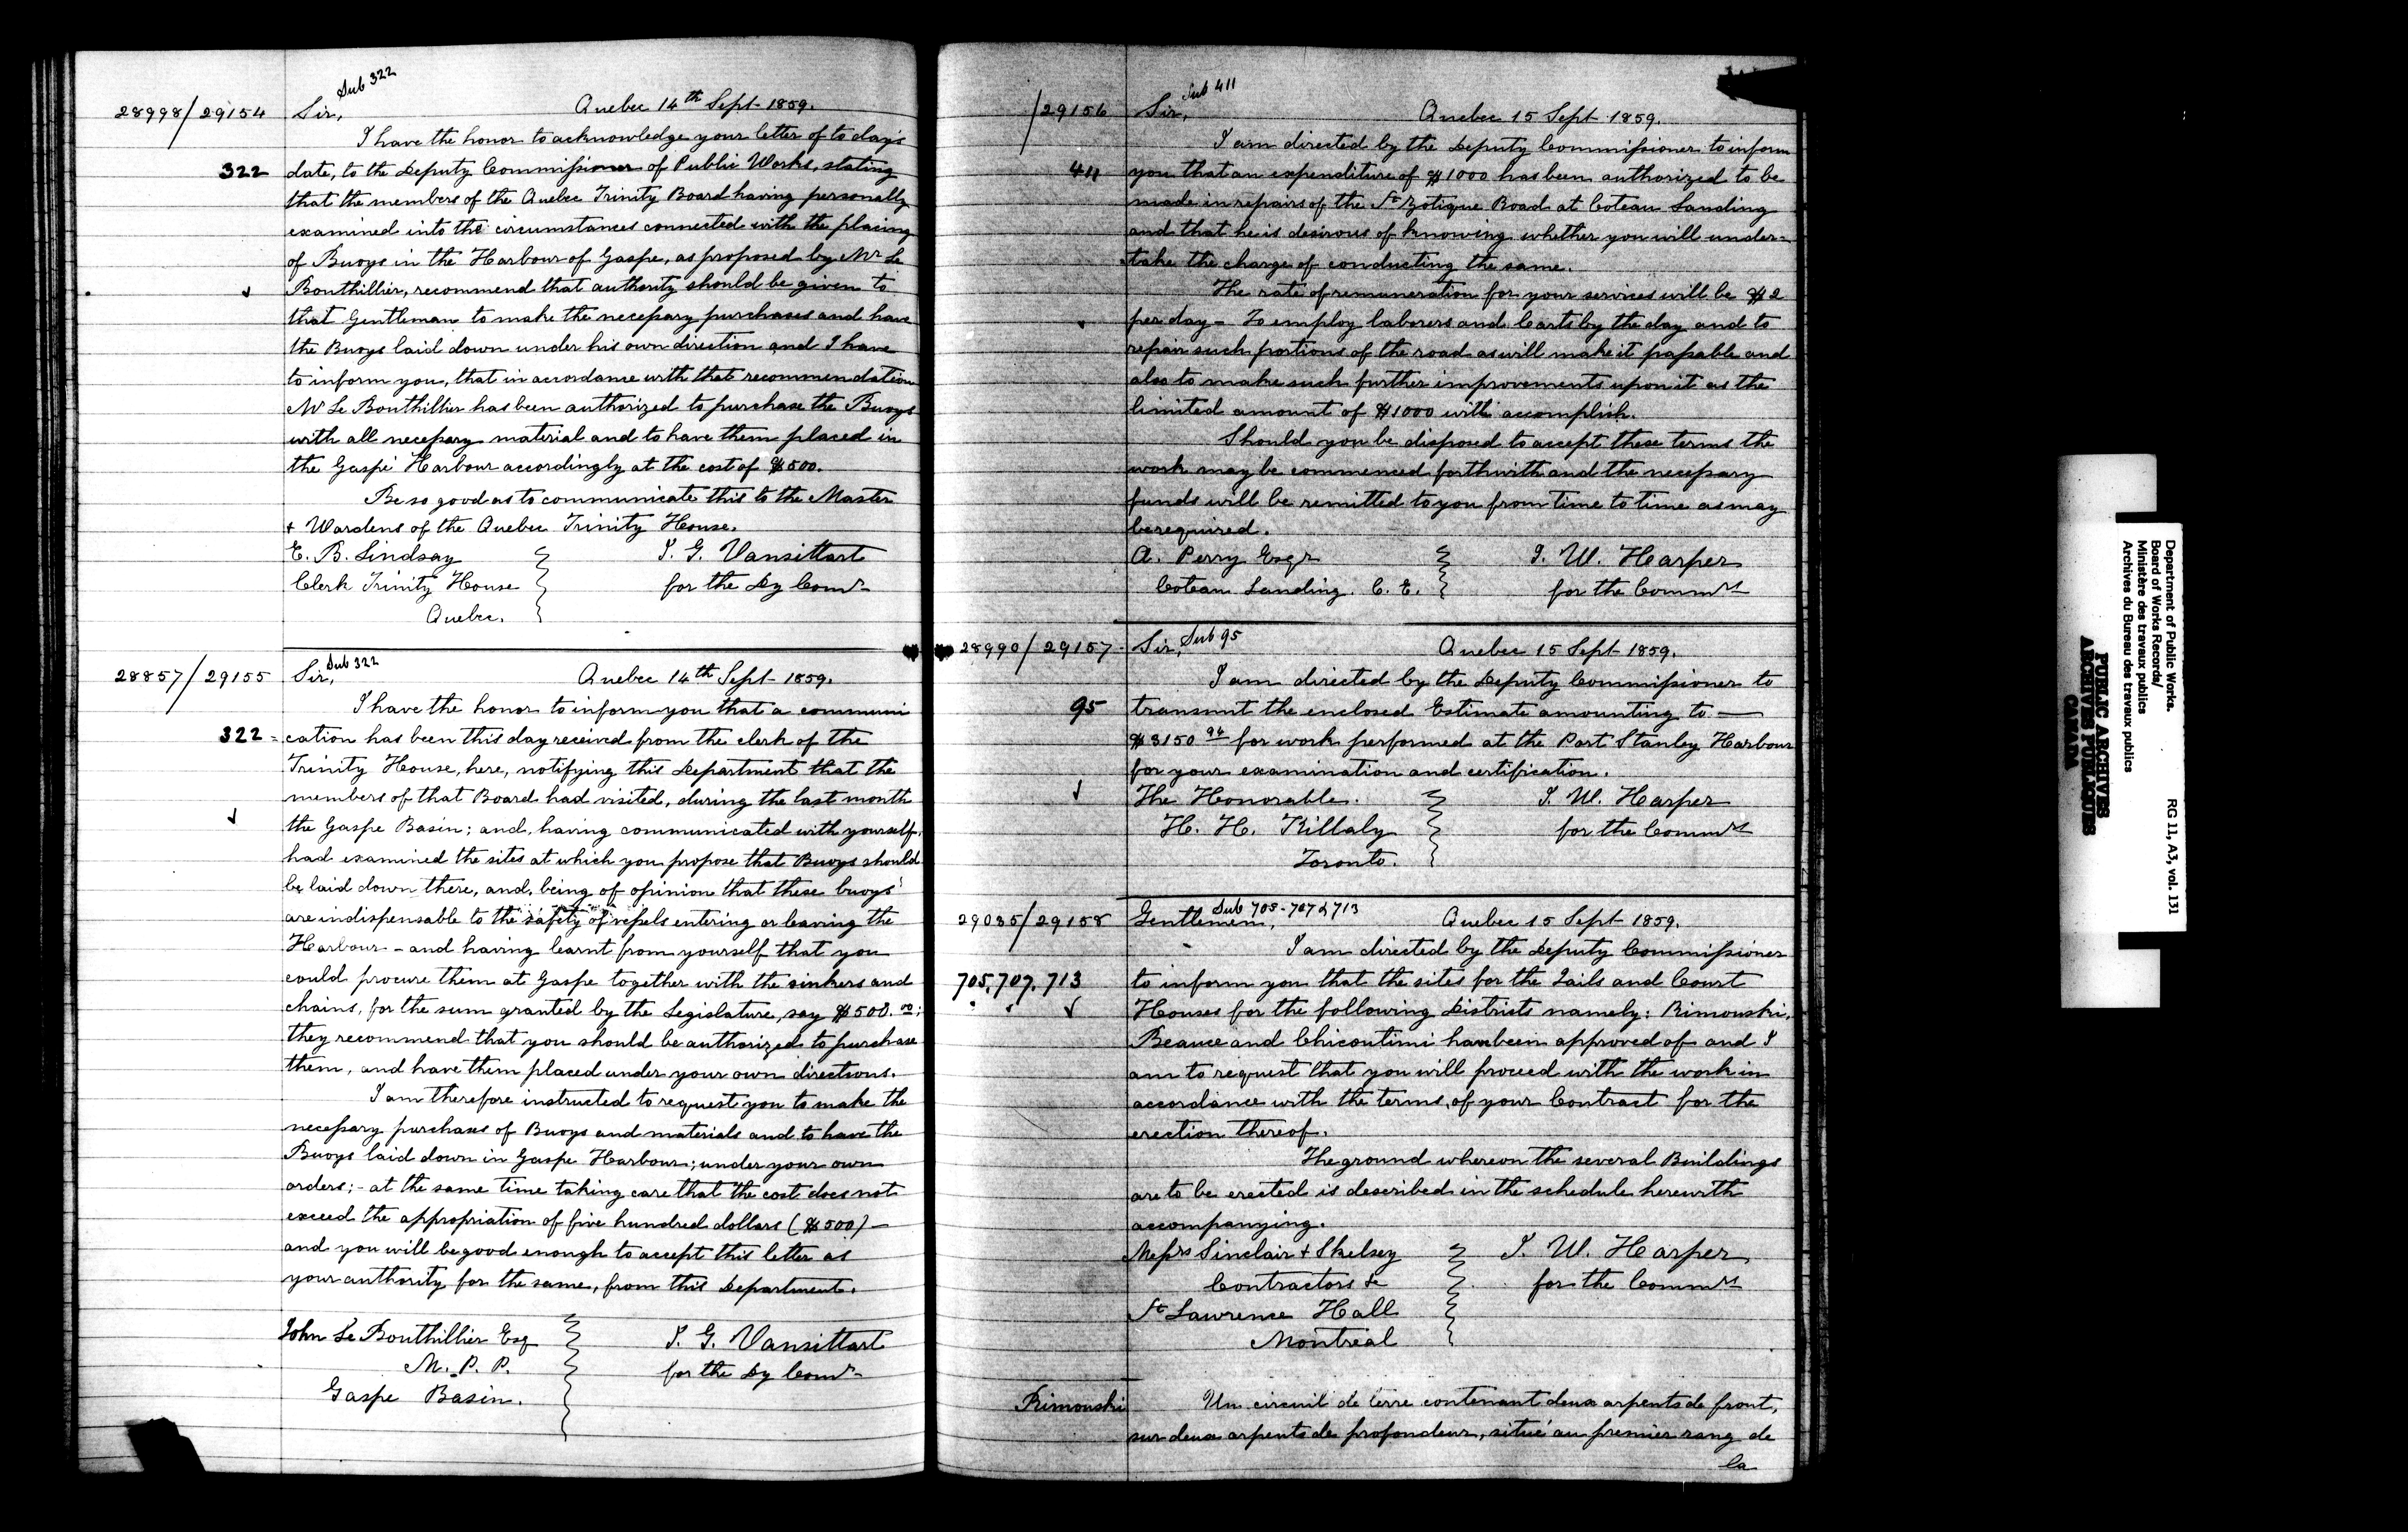 Sub 322
28998/29154 Sir, Quebec 14th Sept. 1859.
I have the honor to acknowledge your letter of to day's
322 date, to the Deputy Commissioner of Public Works, stating
that the members of the Quebec Trinity Board having personally
examined into the circumstances connected with the placing
of Buoys in the Harbour of Gaspe, as proposed by Mr Le
Bouthillier, recommend that authority should be given to
that Gentleman to make the necessary purchases and have
the Buoys laid down under his own direction and I have
to inform you, that in accordance with that recommendation
Mr Le Bouthillier has been authorized to purchase the Buoys
with all necessary material and to have them placed in
the Gaspé Harbour accordingly at the cost of $500.
Be so good as to communicate this to the Master
+ Wardens of the Quebec Trinity House.
E. B. Lindsay J. G. Vansittart
Clerk Trinity House for the Dy Comr
Quebec.
Sub 322
28857/29155 Sir, Quebec 14th Sept. 1859.
I have the honor to inform you that a communi
322 = cation has been this day received from the clerk of the
Trinity House, here, notifying this Department that the
members of that Board had visited, during the last month
the Gaspe Basin; and, having communicated with yourself,
had examined the sites at which you propose that Buoys should
be laid down there, and, being of opinion that these buoys
are indispensable to the safety of vessels entering or leaving the
Harbour - and having learnt from yourself that you
could procure them at Gaspe together with the sinkers and
chains, for the sum granted by the Legislature, say $500.00;
they recommend that you should be authorized to purchase
them, and have them placed under your own directions.
I am therefore instructed to request you to make the
necessary purchases of Buoys and materials and to have the
Buoys laid down in Gaspe Harbour; under your own
orders; - at the same time taking care that the cost does not
exceed the appropriation of five hundred dollars ($500) -
and you will be good enough to accept this letter as
your authority for the same, from this Department.
John Le Bouthillier Esq J. G. Vansittart
M. P. P. for the Dy Comr
Gaspe Basin.
Sub 411
/29156 Sir, Quebec 15 Sept. 1859.
I am directed by the Deputy Commissioner to inform
411 you that an expenditure of $1000 has been authorized to be
made in repairs of the St Zotique Road at Coteau Landing
and that he is desirous of knowing whether you will under-
take the charge of conducting the same.
The rate of remuneration for your services will be $2
per day - To employ laborers and Carts by the day and to
repair such portions of the road as will make it passable and
also to make such further improvements upon it as the
limited amount of $1000 will accomplish.
Should you be disposed to accept these terms the
work may be commenced forthwith and the necessary
funds will be remitted to you from time to time as may
be required.
A. Perry Esqr J. W. Harper
Coteau Landing. C. E. for the Commrs
Sub 95
28990/29157 Sir, Quebec 15 Sept. 1859.
I am directed by the Deputy Commissioner to
95 transmit the enclosed Estimate amounting to —
$3150 94 for work performed at the Port Stanley Harbour
for your examination and certification.
The Honorable. J. W. Harper
H. H. Killaly for the Commrs
Toronto.
Sub 705-707 & 713
29035/29158 Gentlemen, Quebec 15 Sept. 1859.
I am directed by the Deputy Commissioner
705. 707. 713 to inform you that the sites for the Jails and Court
Houses for the following Districts namely: Rimouski,
Beauce and Chicoutimi have been approved of and I
am to request that you will proceed with the work in
accordance with the terms of your Contract for the
erection thereof.
The ground whereon the several Buildings
are to be erected is described in the schedule herewith
accompanying.
Messrs Sinclair + Skelsey J. W. Harper
Contractors &c for the Commrs
St Lawrence Hall
Montreal
Rimouski Un circuit de terre contenant deux arpents de front,
sur deux arpents de profondeur, situé au premier rang de
la
Department of Public Works.
Board of Works Records/
Ministère des travaux publics
Archives du Bureau des travaux publics
RG 11, A3, vol. 131
PUBLIC ARCHIVES
ARCHIVES PUBLIQUES
CANADA